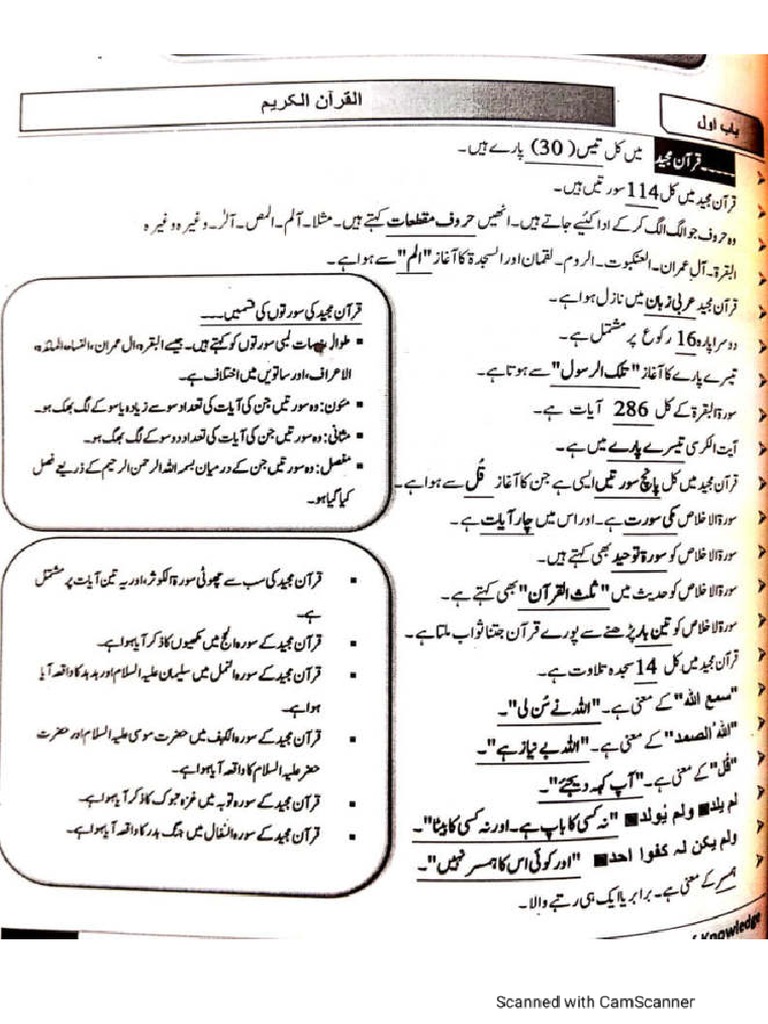 القرآن الكريم
باب اول
قرآن مجید میں کل تیس (30) پارے ہیں۔
قرآن مجید میں کل 114 سورتیں ہیں۔
وہ حروف جو الگ الگ کر کے ادا کئیے جاتے ہیں۔ انھیں حروف مقطعات کہتے ہیں۔ مثلا۔ آلم۔ المص۔ آلر۔ وغیرہ وغیرہ
البقرۃ۔ آل عمران۔ العنکبوت۔ الروم۔ لقمان اور السجدۃ کا آغاز "الم" سے ہوا ہے۔
قرآن مجید عربی زبان میں نازل ہوا ہے۔
دوسرا پارہ 16 رکوع پر مشتمل ہے۔
تیسرے پارے کا آغاز "تلک الرسول" سے ہوتا ہے۔
سورۃ البقرۃ کے کل 286 آیات ہے۔
آیت الکرسی تیسرے پارے میں ہے۔
قرآن مجید میں کل پانچ سورتیں ایسی ہے جن کا آغاز قُل سے ہوا ہے۔
سورۃ الاخلاص مکی سورت ہے۔ اور اس میں چار آیات ہے۔
سورۃ الاخلاص کو سورۃ توحید بھی کہتے ہیں۔
سورۃ الاخلاص کو حدیث میں "ثلث القرآن" بھی کہتے ہے۔
سورۃ الاخلاص کو تین بار پڑھنے سے پورے قرآن جتنا ثواب ملتا ہے۔
قرآن مجید میں کل 14 سجدہ تلاوت ہے۔
"سمع اللہ" کے معنی ہے۔ "اللہ نے سُن لی"۔
"اللہُ الصمد" کے معنی ہے۔ "اللہ بے نیاز ہے"۔
"قُل" کے معنی ہے۔ "آپ کہہ دیجئے"۔
لم یلد ولم یُولد "نہ کسی کا باپ ہے۔ اور نہ کسی کا بیٹا"۔
ولم یکن لہ کفوا احد "اور کوئی اس کا ہمسر نہیں"۔
ہمسر کے معنی ہے۔ برابر یا ایک ہی رتبے والا۔
قرآن مجید کی سورتوں کی قسمیں۔۔۔۔
طوال: سات لمبی سورتوں کو کہتے ہیں۔ جیسے البقرہ، ال عمران، النساء، المائدہ،
الاعراف، اور ساتویں میں اختلاف ہے۔
مئون: وہ سورتیں جن کی آیات کی تعداد سو سے زیادہ یا سو کے لگ بھگ ہو۔
مثانی: وہ سورتیں جن کی آیات کی تعداد دو سو کے لگ بھگ ہو۔
مفصل: وہ سورتیں جن کے درمیان بسم اللہ الرحمن الرحیم کے ذریعے فصل
کیا گیا ہو۔
قرآن مجید کی سب سے چھوٹی سورۃ الکوثر، اور یہ تین آیات پر مشتمل
ہے۔
قرآن مجید کے سورہ الحج میں مکھیوں کا ذکر آیا ہوا ہے۔
قرآن مجید کے سورہ النمل میں سلیمان علیہ السلام اور ہدہد کا واقعہ آیا
ہوا ہے۔
قرآن مجید کے سورہ الکہف میں حضرت موسی علیہ السلام اور حضرت
خضر علیہ السلام کا واقعہ آیا ہوا ہے۔
قرآن مجید کے سورہ توبہ میں غزوہ تبوک کا ذکر آیا ہوا ہے۔
قرآن مجید کے سورہ انفال میں جنگ بدر کا واقعہ آیا ہوا ہے۔
of Knowledge
Scanned with CamScanner